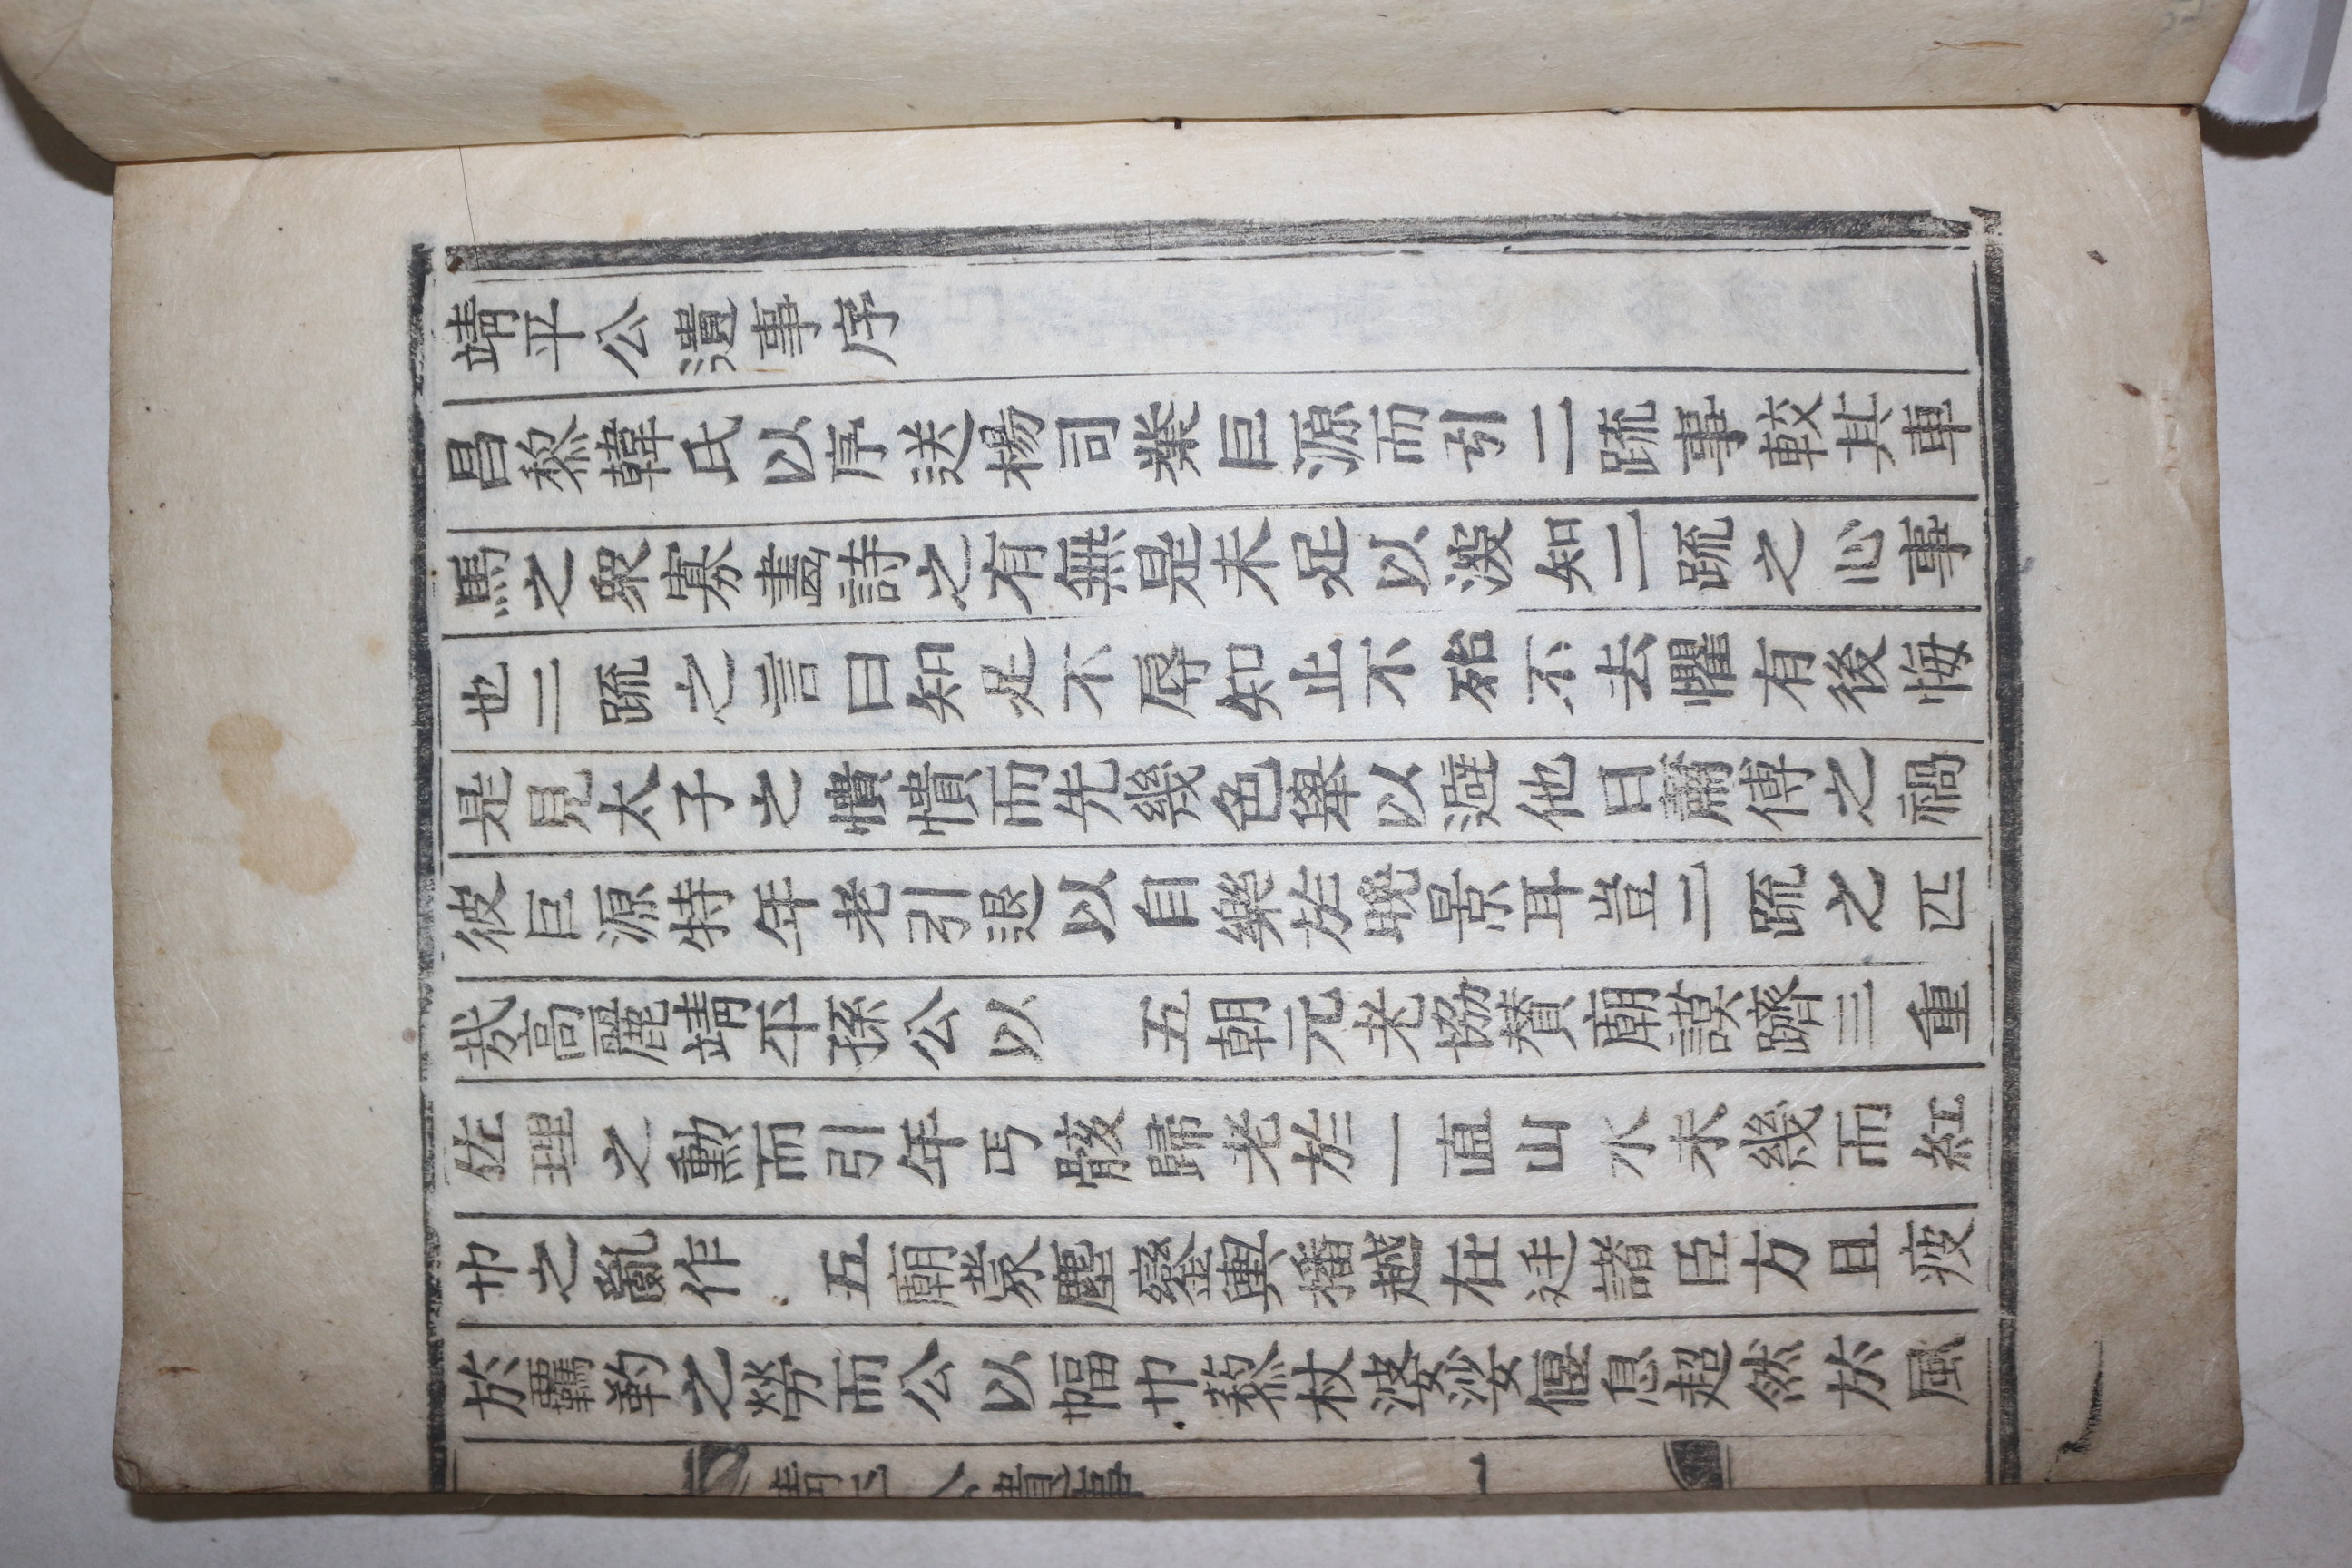 靖平公遺事序
昌黎韓氏以序送楊司業巨源而引二䟽事較其車
馬之衆寡畫詩之有無是未足以深知二䟽之心事
也二䟽之言曰知足不辱知止不殆不去懼有後悔
是見太子之憒憒而先幾色擧以避他日蕭傅之禍
彼巨源特年老引退以自樂於晩景耳豈二䟽之匹
哉高麗靖平孫公以 五朝元老協賛廟謨躋三重
佐理之勳而引年丐骸歸老於一直山水未幾而紅
巾之亂作 五廟蒙塵鑾輿播越在廷諸臣方且疲
於羈靮之勞而公以幅巾藜杖婆娑偃息超然於風
靖平公遺事 一